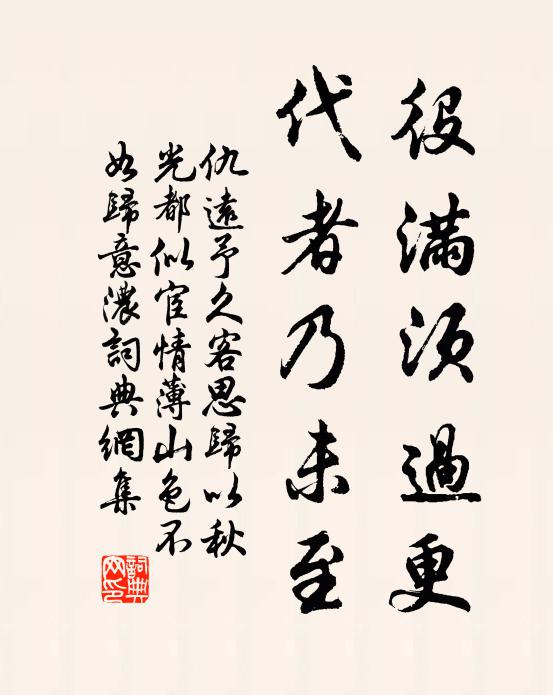 役滿須過更
代者乃未至
仇遠予久客思歸以秋
光都似宦情薄山色不
如歸意濃詞典網集
詞典
网印